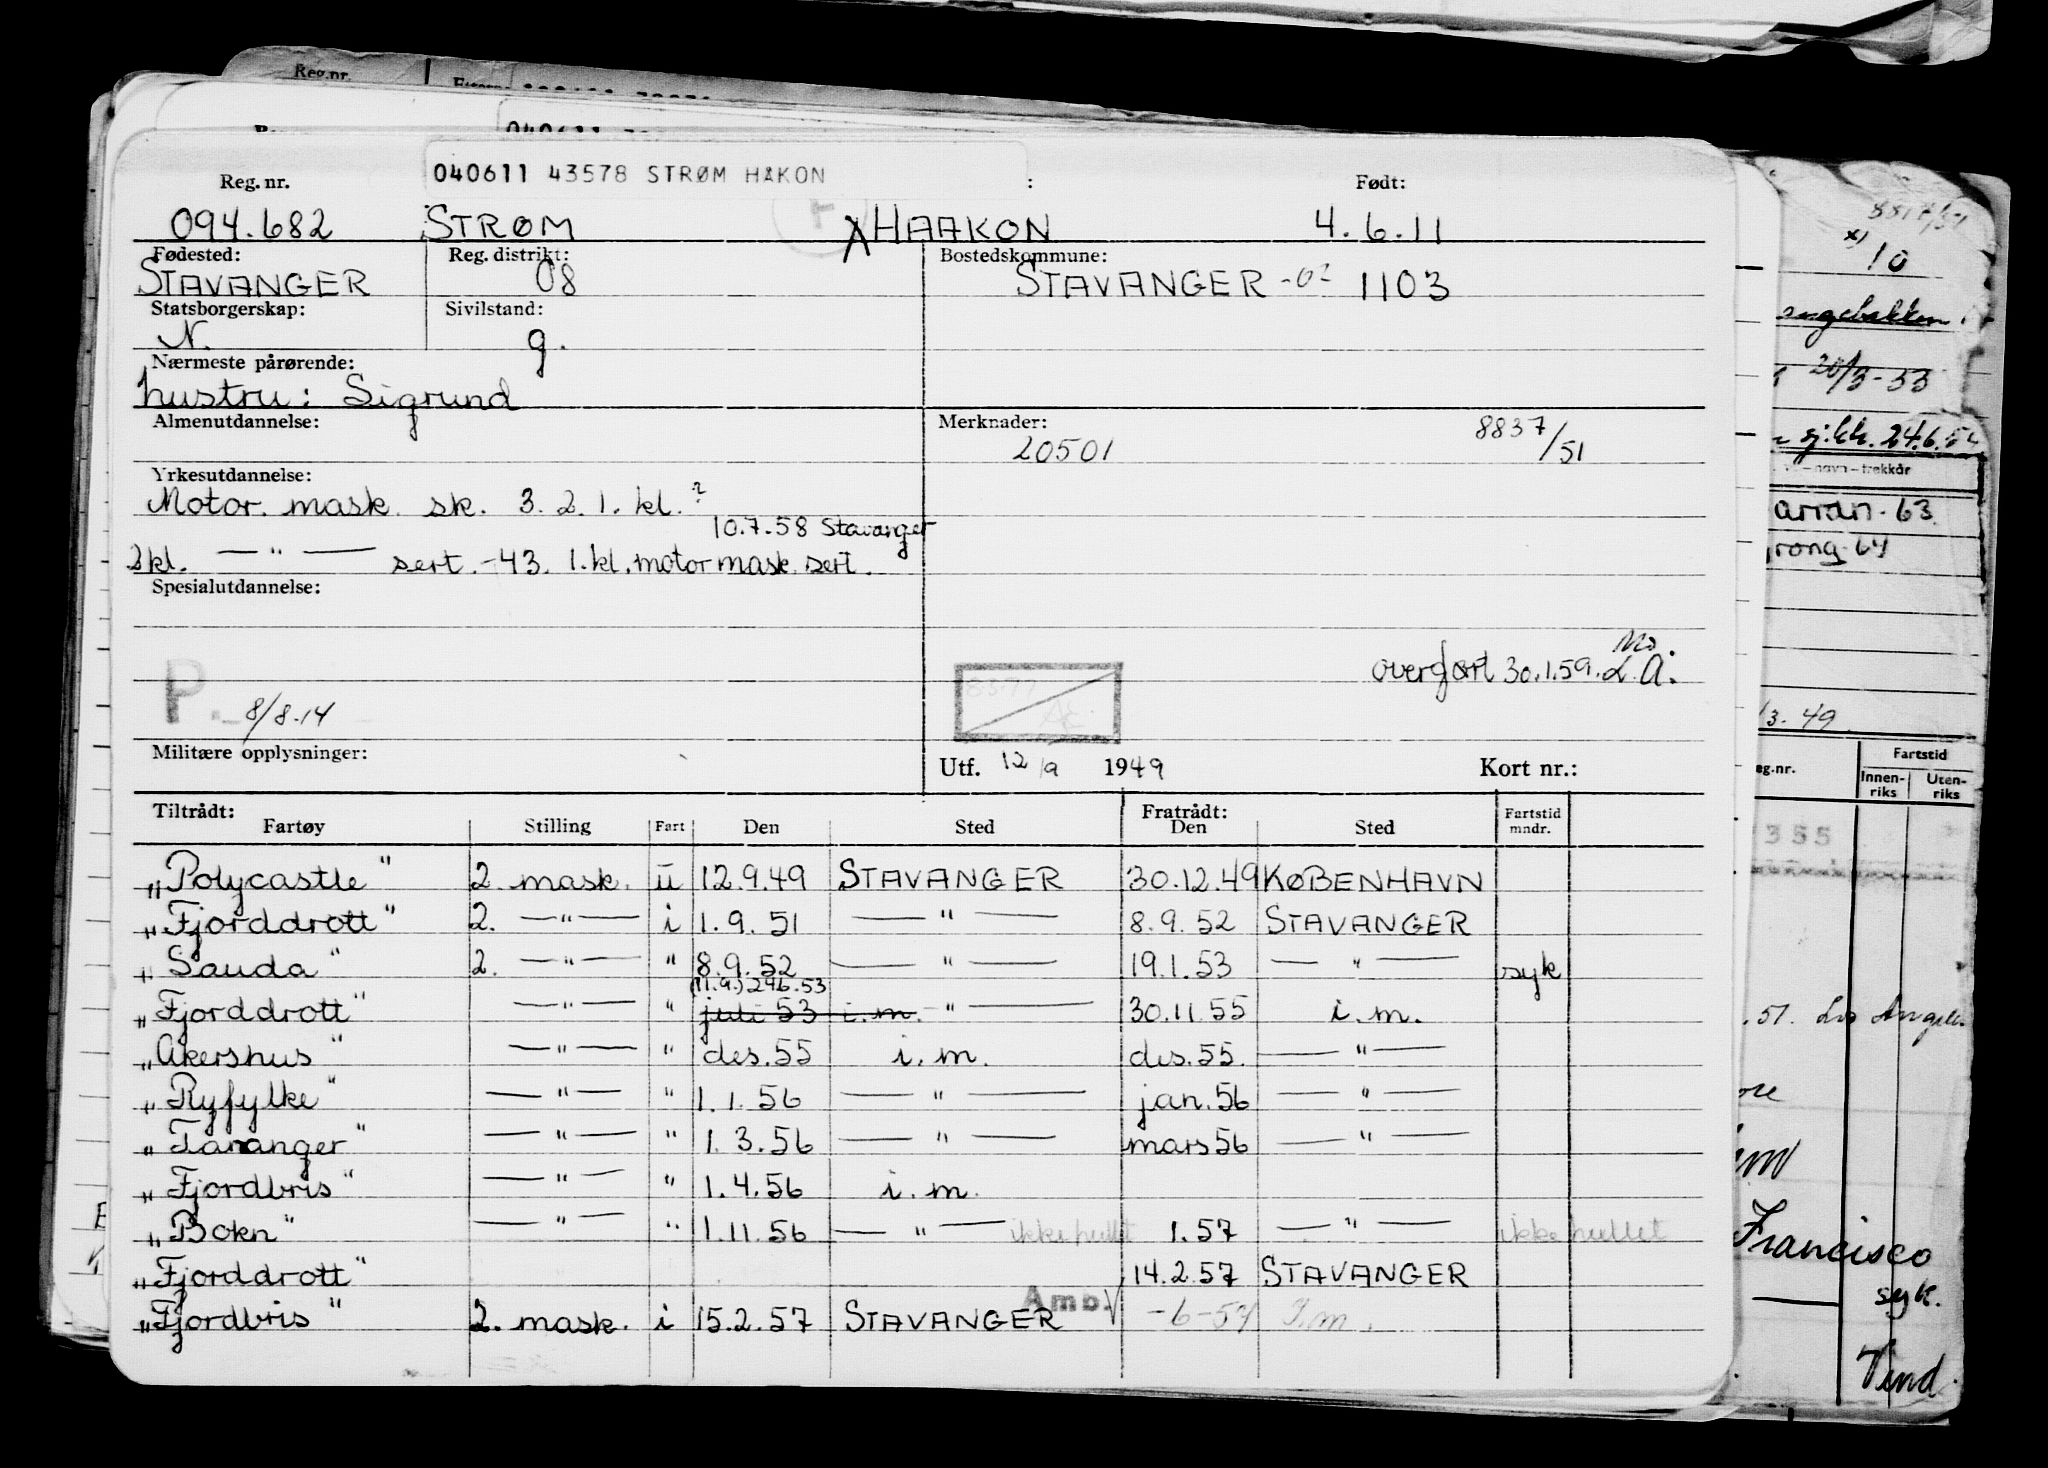 Reg.nr.
040611 43578 STRØM HÅKON
Reg. nr. : Født:
094.682 STRØM HAAKON 4.6.11
Fødested: Reg. distrikt: Bostedskommune:
STAVANGER 08 STAVANGER -02 1103
Statsborgerskap: Sivilstand:
N. g.
Nærmeste pårørende:
hustru: Sigrund
Almenutdannelse: Merknader:
20501 8837/51
Yrkesutdannelse:
Motor. mask. sk. 3. 2. 1. kl.?
10.7.58 Stavanger
2kl. —"— sert. -43. 1.kl. motor mask. sert.
Spesialutdannelse:
overført 30.1.59. L.A.
P. 8/8.14
Militære opplysninger:
Utf. 12/9 1949 Kort nr.:
Tiltrådt: Fratrådt:
Fartøy Stilling Fart Den Sted Den Sted Fartstid mndr.
„Polycastle" 2. mask. u 12.9.49 STAVANGER 30.12.49 KØBENHAVN
„Fjorddrott" 2. —"— i 1.9.51 —"— 8.9.52 STAVANGER
„Sauda" 2. —"— " 8.9.52 —"— 19.1.53 —"— syk
(11.9.) 29.6.53
„Fjorddrott" —"— " juli 53 i.m. —"— 30.11.55 i.m.
„Akershus" —"— " des.55 i.m. des.55. —"—
„Ryfylke" —"— " 1.1.56 —"— jan.56 —"—
„Tananger" —"— " 1.3.56 —"— mars56 —"—
„Fjordbris" —"— " 1.4.56 i.m.
„Bokn" —"— " 1.11.56 —"— ikke hullet 1.57 —"— ikke hullet
„Fjorddrott" 14.2.57 STAVANGER
„Fjordbris" 2. mask. i 15.2.57 STAVANGER Amb. -6-57 I.m.
10
20/3-53
sj.kk. 24.6.54
-navn-trekkår
63
64
3.49
Fartstid
eg.nr. Innen-riks Uten-riks
355
.51. Los Angeles
Francisco
syk.